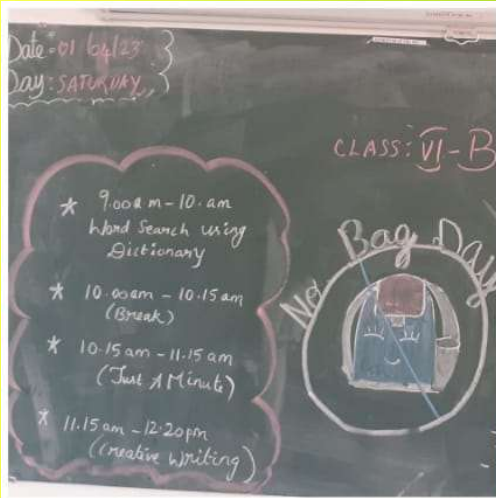 Date: 01/04/23
Day: SATURDAY
CLASS: VI-B
* 9.00am-10.am
Word Search using
Dictionary
* 10.00am - 10.15am
(Break)
* 10.15am - 11.15am
(Just A Minute)
* 11.15am - 12.20pm
(Creative Writing)
No Bag Day